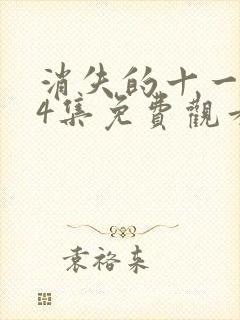 消失的十一
4集免費觀
袁裕来